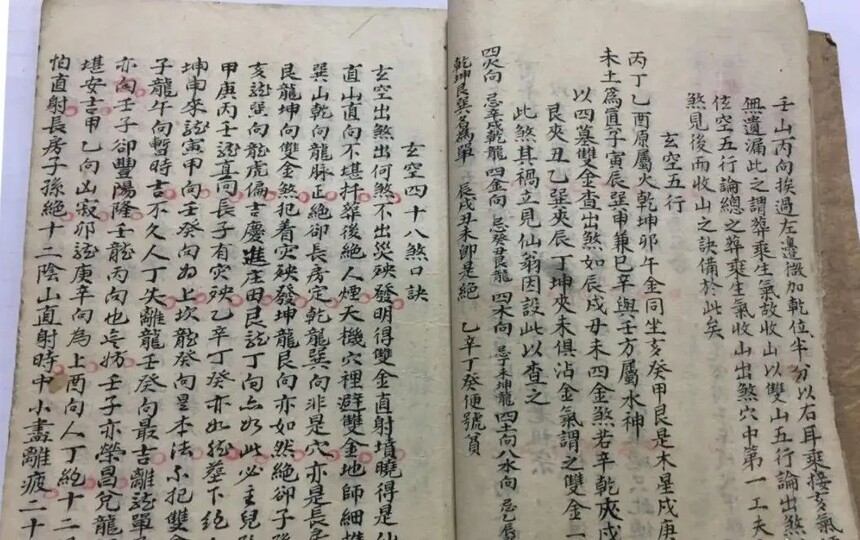 壬山丙向挨過左邊微加乾位半分以右耳乘接亥氣
無遺漏此之謂葬乘生氣故收山以雙山五行論出煞
伭空五行論總之葬乘生氣收山出煞穴中第一工夫
煞見後而收山之訣備於此矣
玄空五行
丙丁乙酉原屬火乾坤卯午金同坐亥癸甲艮是木星戌庚
未土爲眞子寅辰巽申兼巳辛與壬方屬水神
以四墓雙金查出煞如辰戌丑未四金煞若辛乾夾戌
艮夾丑乙巽夾辰丁坤夾未俱沾金氣謂之雙金一
此煞其禍立見仙翁因設此以查之
四火向 忌辛戌乾龍 四金向 忌癸丑艮龍 四木向 忌丁未坤龍 四土向八水向 忌乙辰
乾坤艮巽名爲單 辰戌丑未卽是絕 乙辛丁癸便號貧
玄空四十八煞口訣
玄空出煞出何煞不出災殃發明得雙金直射墳曉得是仙
直山直向不堪扦葬後絕人煙天機穴裡避雙金地師細
巽山乾向龍脉正絕卻長房定乾龍巽向非是穴亦是長
艮龍坤向雙金煞犯着災殃發坤龍艮向亦如然絕卻子
亥龍巽向龍虎偏吉慶進庄田艮龍丁向亦如此必主兒
甲庚丙壬龍眞同長子有災殃乙辛丁癸亦如絕墓下絕
坤申來龍寅甲向壬癸向如上坎龍癸向是本法不犯雙金
子龍午向暫時吉不久人丁失離龍壬癸向最吉離龍單
亦向壬子卻豐陽隆壬龍丙向也無妨壬子亦榮昌兌龍
堪安吉甲乙向山寂卯龍庚辛向為上酉向人丁絶十二
怕直射長房子孫絕十二陰山直射時中小盡離疲二十